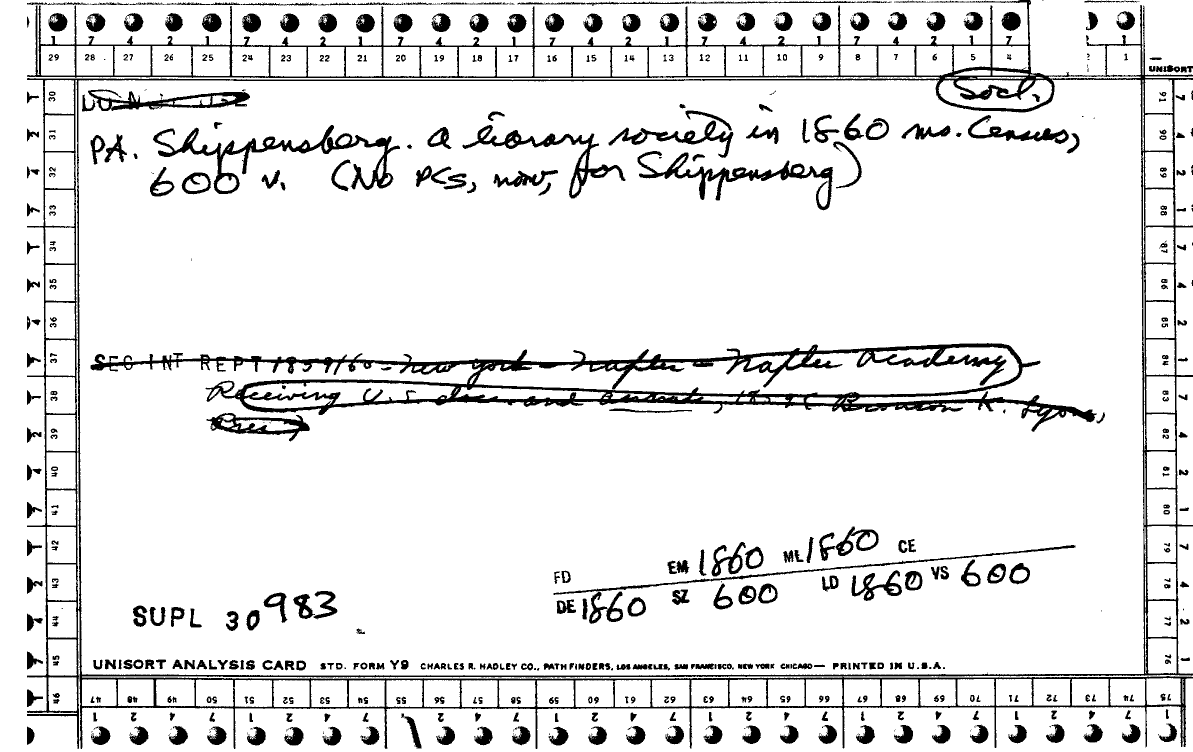 7 4 2 1 7 4 2 1 7 4 2 1 7 4 2 1 7 4 2 1 7 4 2 1 7 1
29 28 27 26 25 24 23 22 21 20 19 18 17 16 15 14 13 12 11 10 9 8 7 6 5 4 2 1
UNISORT
Socl.
DO NOT USE
PA. Shippensberg. A library society in 1860 ms. Census,
600 v. (No PCS, now, for Shippensberg)
SEC INT REPT 1859/60 - New York - Naples - Naples Academy
Receiving U.S. docs. and annals, 1859 ( Bronson K. Lyons,
Pres.)
FD EM 1860 ML 1860 CE
DE 1860 SZ 600 LD 1860 VS 600
SUPL 30983
UNISORT ANALYSIS CARD STD. FORM Y9 CHARLES R. HADLEY CO., PATHFINDERS, LOS ANGELES, SAN FRANCISCO, NEW YORK CHICAGO — PRINTED IN U.S.A.
30 31 32 33 34 35 36 37 38 39 40 41 42 43 44 45 46
91 90 89 88 87 86 85 84 83 82 81 80 79 78 77 76
47 48 49 50 51 52 53 54 55 56 57 58 59 60 61 62 63 64 65 66 67 68 69 70 71 72 73 74 75